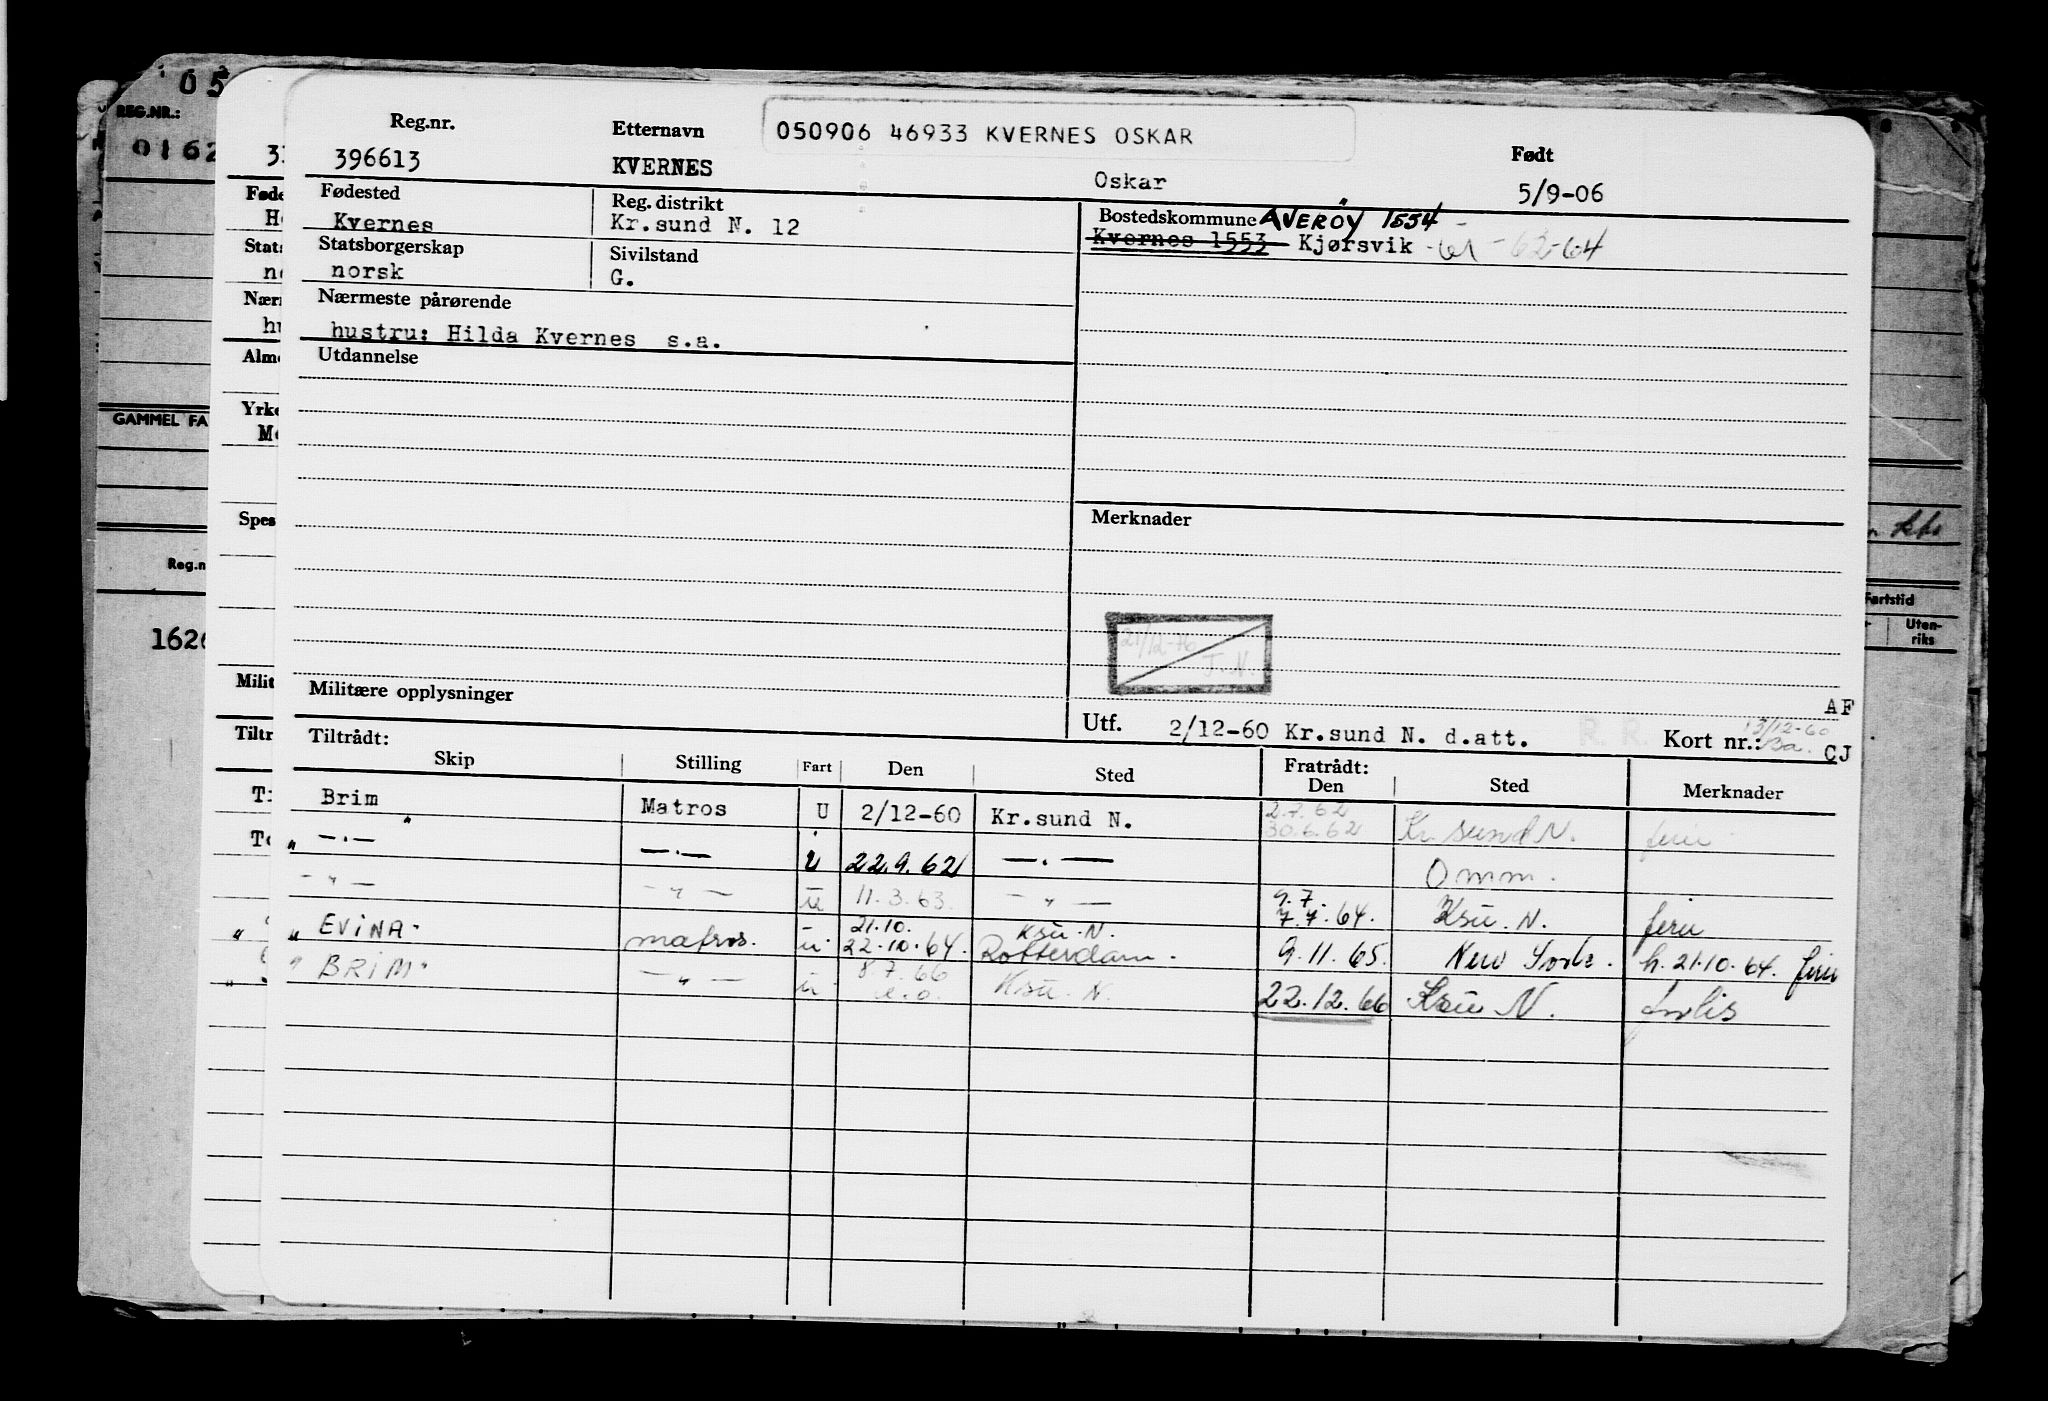 05
REG.NR.:
0162
GAMMEL FA
Reg.n
1626
Fartstid
Uten-
riks
Føde
Stats
Nærn
Alme
Yrke
Spes
Milit
Tiltr
050906 46933 KVERNES OSKAR
Reg.nr. Etternavn Født
396613 KVERNES Oskar 5/9-06
Fødested Reg. distrikt Bostedskommune AVERØY 1554
Kvernes Kr.sund N. 12 Kvernes 1553 Kjørsvik -61 -62-64
Statsborgerskap Sivilstand
norsk G.
Nærmeste pårørende
hustru: Hilda Kvernes s.a.
Utdannelse
Merknader
21/12-76
J.N.
Militære opplysninger
AF
Utf. 2/12-60 Kr.sund N. d.att. R. R. Kort nr.: 3a. CJ
13/12-60
Tiltrådt: Fratrådt:
Skip Stilling Fart Den Sted Den Sted Merknader
Brim Matros U 2/12-60 Kr.sund N. 2.7.62 30.6.62 Kr.sund N. ferie
" — . — — . — u 22.9.62 — . — Omm.
— " — — " — u 11.3.63. — " — 9.7. 7.7.64. Ksu. N. ferie
" EVINA matros. u 21.10. 22.10.64. Ksu. N. Rotterdam. 9.11.65. New York. h. 21.10.64. ferie
" BRIM — " — u 8.7.66 Ksu. N. 22.12.66 Ksu N.